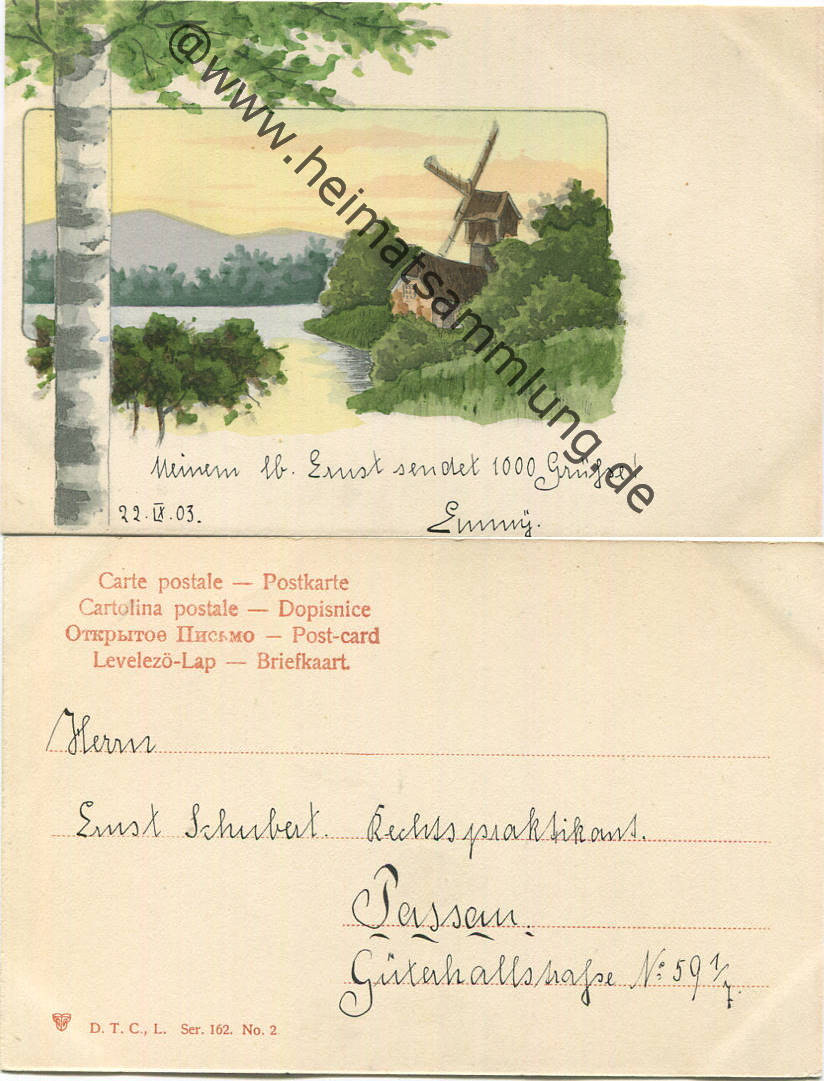 @www.heimatsammlung.de
Meinem lb. Ernst sendet 1000 Grüße!
22.IX.03.
Emmÿ.
Carte postale — Postkarte
Cartolina postale — Dopisnice
Открытое Письмо — Post-card
Levelezö-Lap — Briefkaart.
Herrn
Ernst Schubert. Rechtspraktikant.
Passau.
Güterhallstraße No 59 1/7.
D. T. C., L. Ser. 162. No. 2